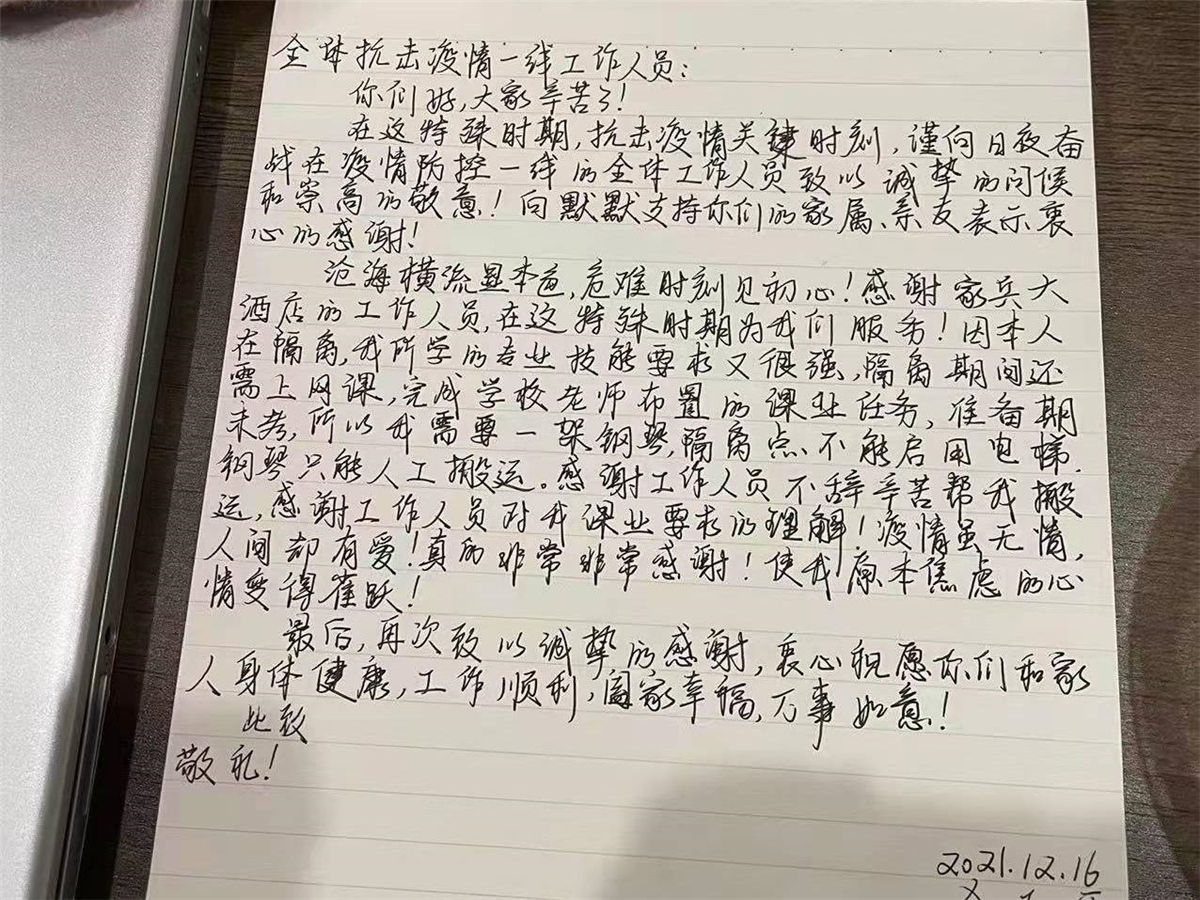 全体抗击疫情一线工作人员:
你们好,大家辛苦了!
在这特殊时期,抗击疫情关建时刻,谨向日夜奋
战在疫情防控一线的全体工作人员致以诚挚的问候
和崇高的敬意!向默默支持你们的家属、亲友表示衷
心的感谢!
沧海横流显本色,危难时刻见初心!感谢家兵大
酒店的工作人员,在这特殊时期为我们服务!因本人
在隔离,我所学的专业技能要求又很强,隔离期间还
需上网课,完成学校老师布置的课业任务,准备期
末考,所以我需要一架钢琴,隔离点不能启用电梯.
钢琴只能人工搬运。感谢工作人员不辞辛苦帮我搬
运,感谢工作人员对我课业要求的理解!疫情虽无情,
人间却有爱!真的非常非常感谢!使我原本焦虑的心
情变得雀跃!
最后,再次致以诚挚的感谢,衷心祝愿你们和家
人身体健康,工作顺利,阖家幸福,万事如意!
此致
敬礼!
2021.12.16